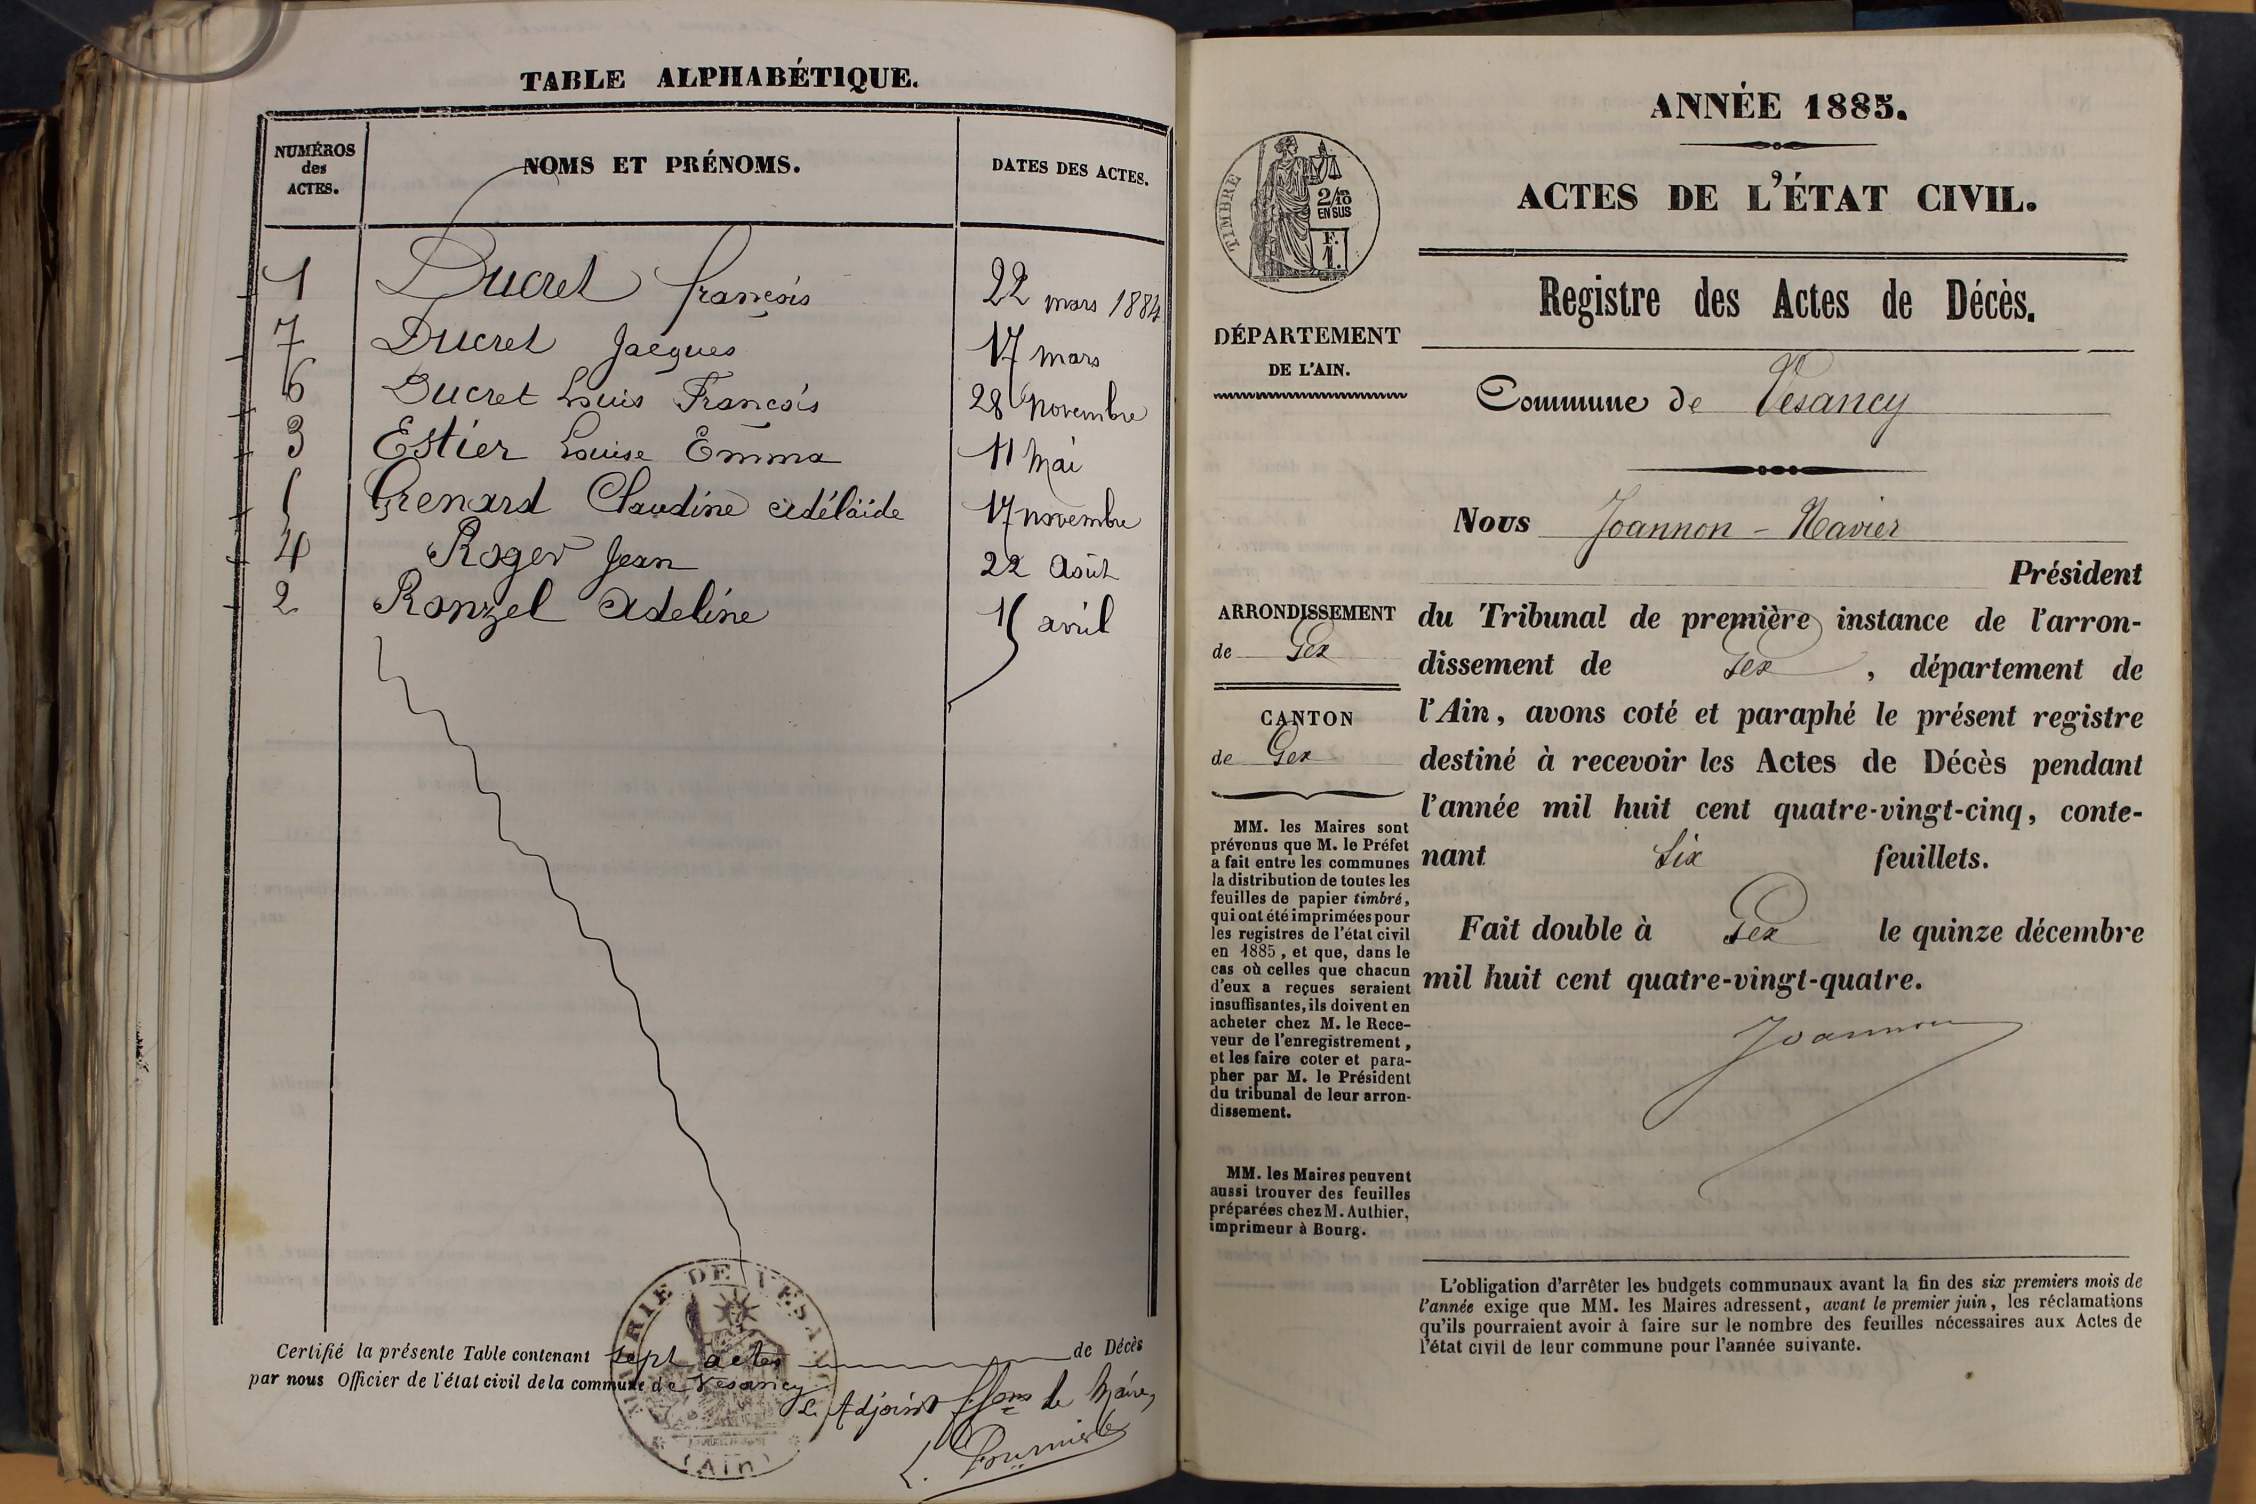 TABLE ALPHABÉTIQUE.
NUMÉROS
des
ACTES.
NOMS ET PRÉNOMS.
DATES DES ACTES.
1 Ducret françois 22 mars 1884
7 Ducret Jacques 17 mars
6 Ducret Louis François 28 novembre
3 Estier Louise Emma 11 Mai
5 Grenard Claudine Adélaïde 17 novembre
4 Roger Jean 22 Août
2 Ronzel Adeline 15 avril
Certifié la présente Table contenant sept actes de Décès
par nous Officier de l'état civil de la commune de Vesancy
L'Adjoint ffons de Maire,
L. Fournier
MAIRIE DE VESANCY
(Ain)
ANNÉE 1885.
ACTES DE L'ÉTAT CIVIL.
TIMBRE
2/10
EN SUS
F.
1.
Registre des Actes de Décès.
DÉPARTEMENT
DE L'AIN.
Commune de Vesancy
Nous Joannon - Xavier
Président
ARRONDISSEMENT
de Gex
CANTON
de Gex
du Tribunal de première instance de l'arron-
dissement de Gex, département de
l'Ain, avons coté et paraphé le présent registre
destiné à recevoir les Actes de Décès pendant
l'année mil huit cent quatre-vingt-cinq, conte-
nant Six feuillets.
Fait double à Gex le quinze décembre
mil huit cent quatre-vingt-quatre.
Joannon
MM. les Maires sont
prévenus que M. le Préfet
a fait entre les communes
la distribution de toutes les
feuilles de papier timbré,
qui ont été imprimées pour
les registres de l'état civil
en 1885, et que, dans le
cas où celles que chacun
d'eux a reçues seraient
insuffisantes, ils doivent en
acheter chez M. le Rece-
veur de l'enregistrement,
et les faire coter et para-
pher par M. le Président
du tribunal de leur arron-
dissement.
MM. les Maires peuvent
aussi trouver des feuilles
préparées chez M. Authier,
imprimeur à Bourg.
L'obligation d'arrêter les budgets communaux avant la fin des six premiers mois de
l'année exige que MM. les Maires adressent, avant le premier juin, les réclamations
qu'ils pourraient avoir à faire sur le nombre des feuilles nécessaires aux Actes de
l'état civil de leur commune pour l'année suivante.